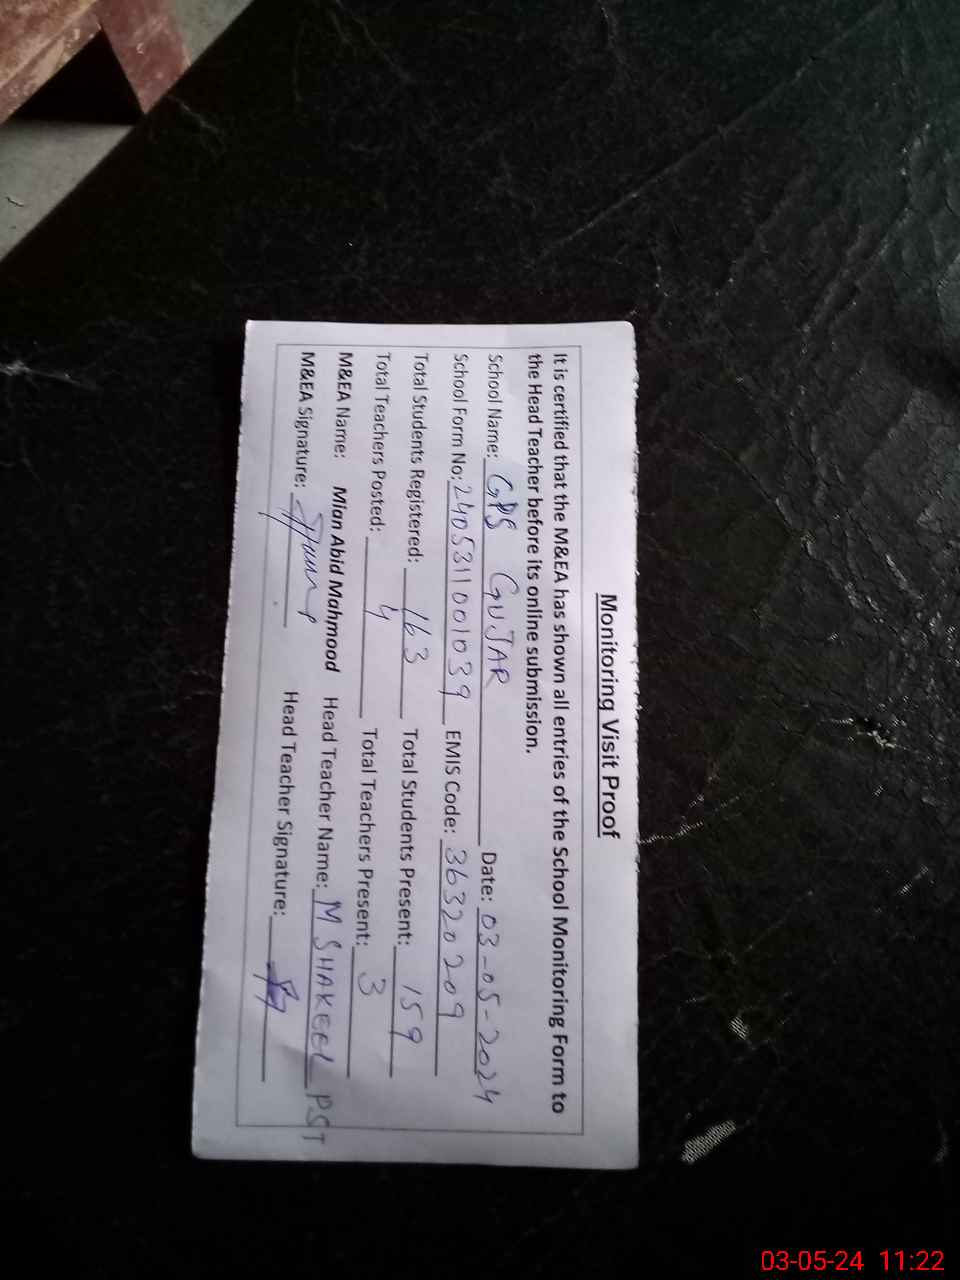 Monitoring Visit Proof
It is certified that the M&EA has shown all entries of the School Monitoring Form to
the Head Teacher before its online submission.
School Name: GPS GUJAR Date: 03-05-2024
School Form No: 2405311001039 EMIS Code: 36320209
Total Students Registered: 163 Total Students Present: 159
Total Teachers Posted: 4 Total Teachers Present: 3
M&EA Name: Mian Abid Mahmood Head Teacher Name: M SHAKEEL PST
M&EA Signature: Head Teacher Signature:
03-05-24 11:22